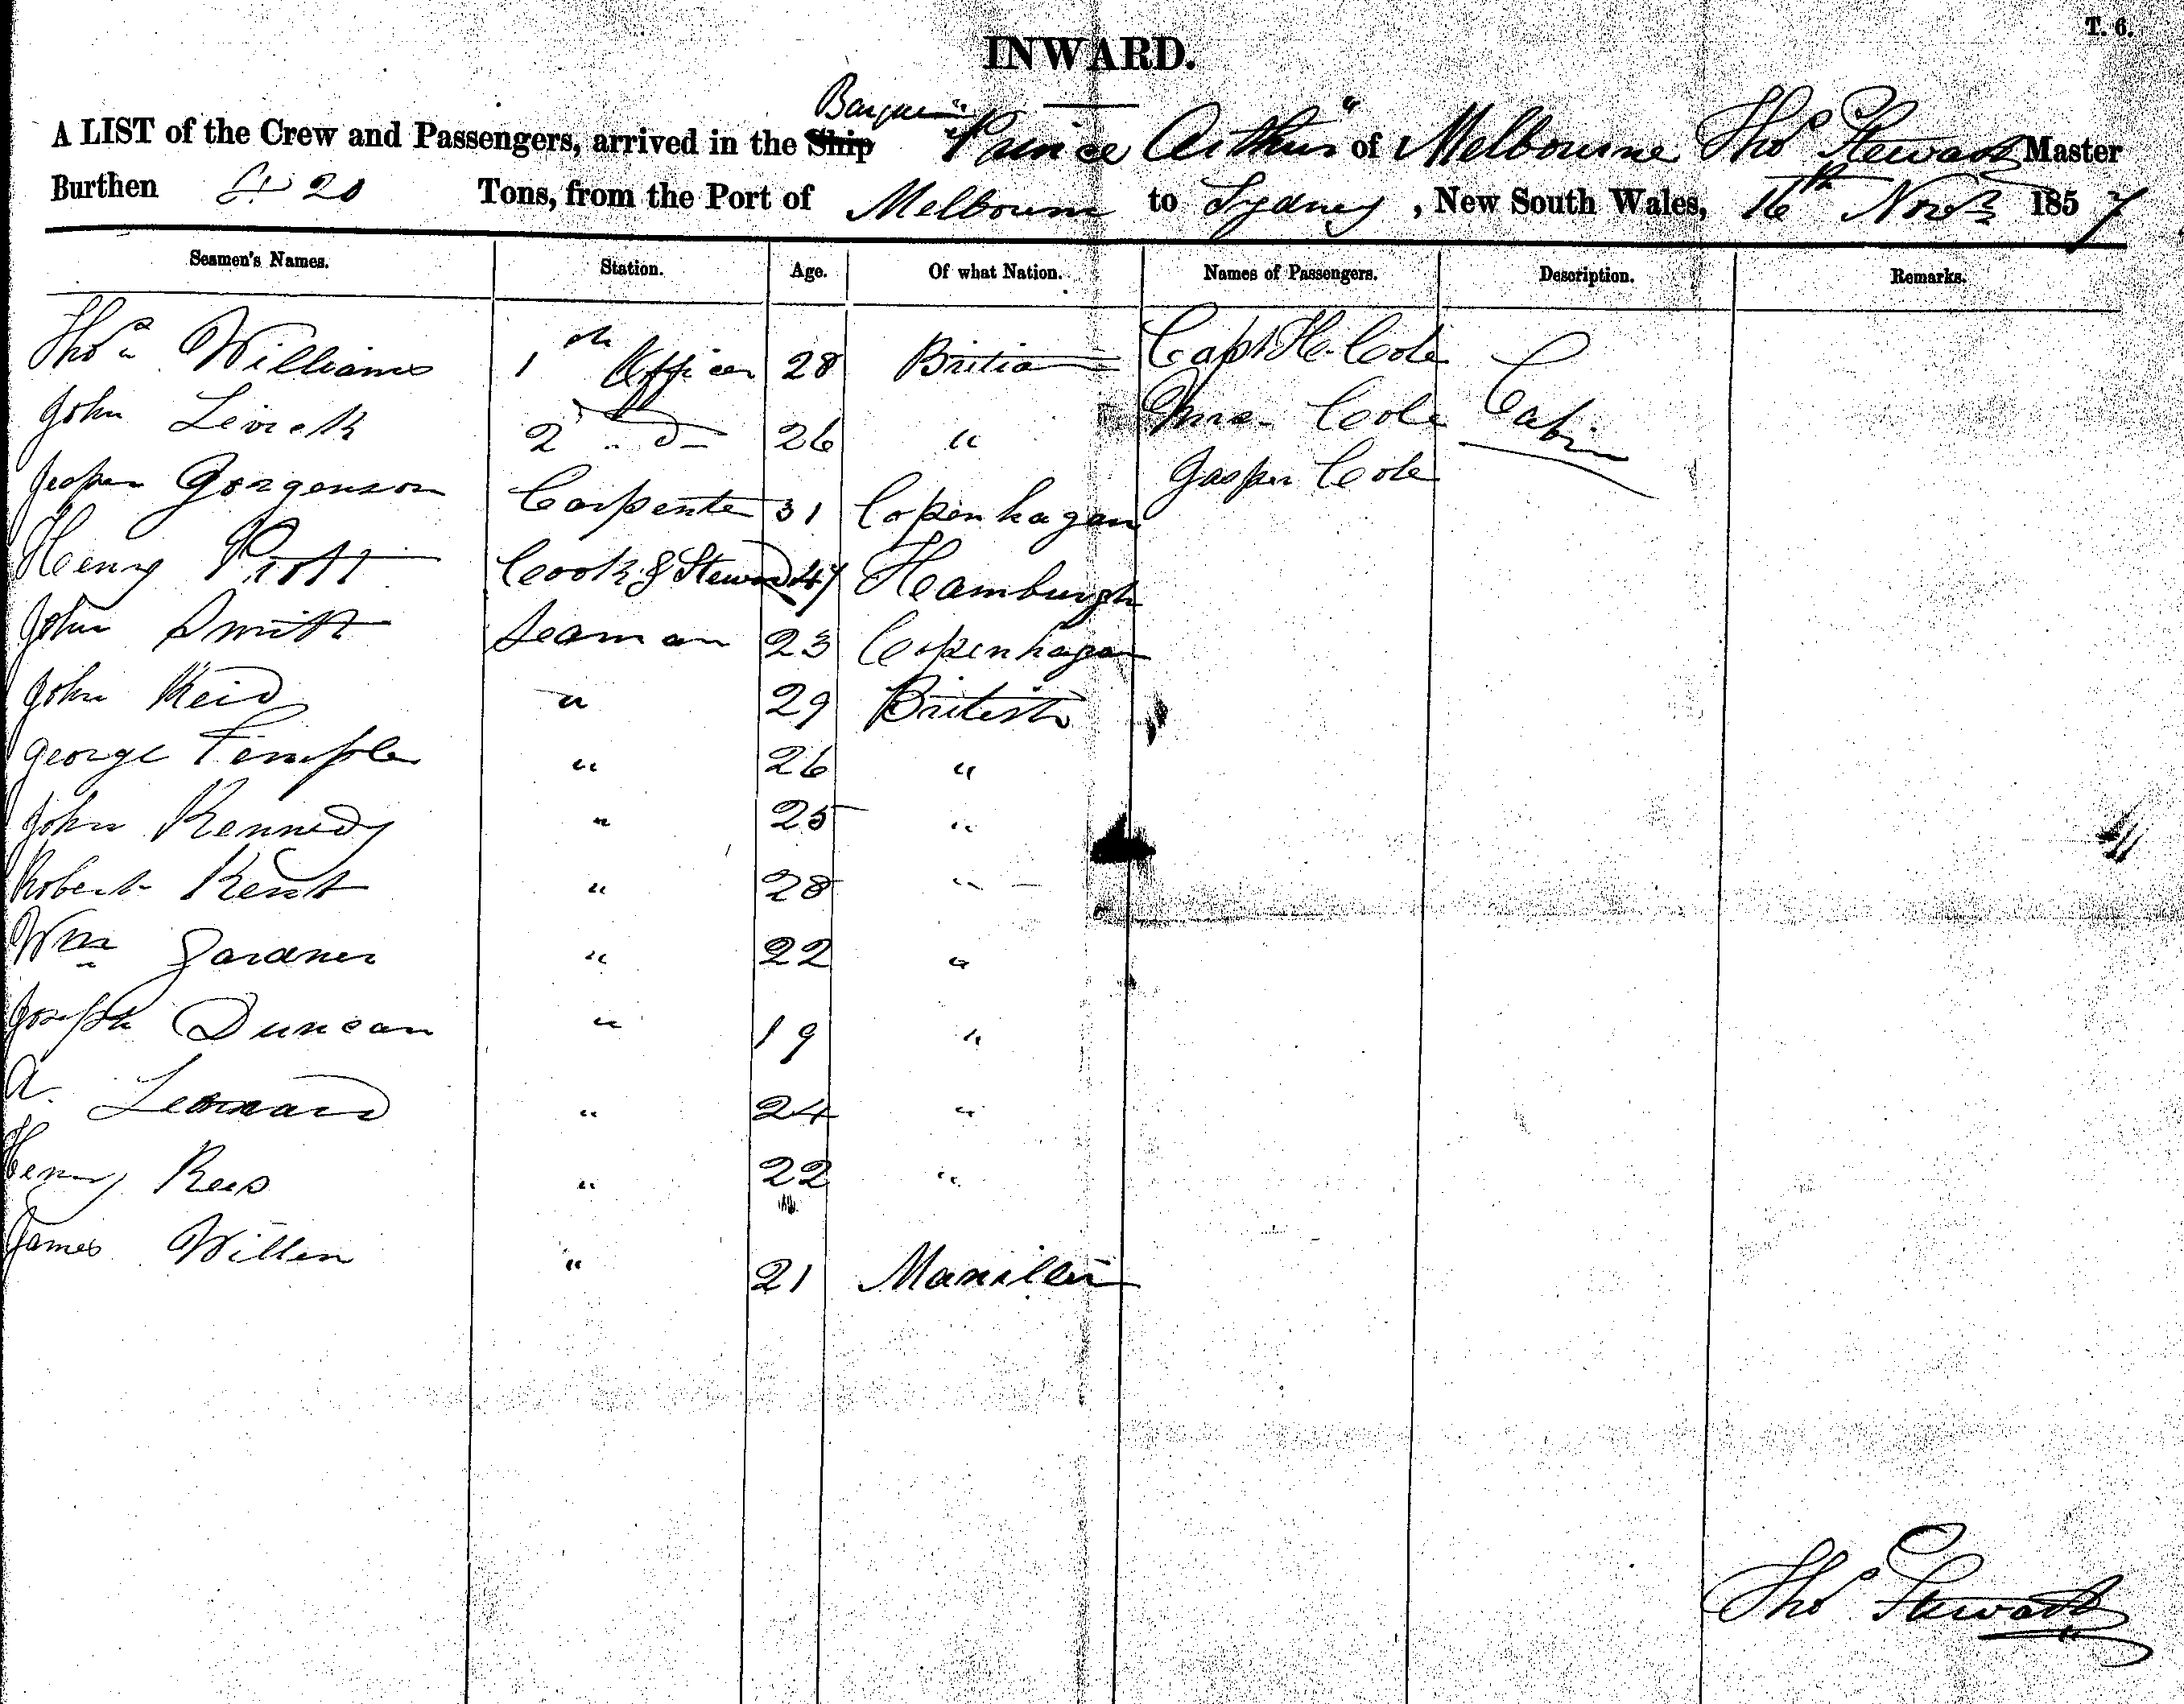 T. 6.
INWARD.
Barque
A LIST of the Crew and Passengers, arrived in the Ship "Prince Arthur" of Melbourne Thos Stewart Master
Burthen 420 Tons, from the Port of Melbourne to Sydney, New South Wales, 16th Novr 1857
Seamen's Names. Station. Age. Of what Nation. Names of Passengers. Description. Remarks.
Thos Williams 1 Officer 28 Britain Capt H. Cole
John 2 " do 26 " Mrs Cole Cabin
Jesper Gorgenson Carpenter 31 Copenhagen Jasper Cole
Henry Cook & Steward 47 Hamburgh
John Smith Seaman 23 Copenhagen
John Reid " 29 British
George Temple " 26 "
John Kennedy " 25 "
Robert Kent " 28 "
Wm Gardner " 22 "
Joseph Duncan " 19 "
A. Leonard " 24 "
Henry Rees " 22 "
James Willen " 21 Manilla
Thos Stewart